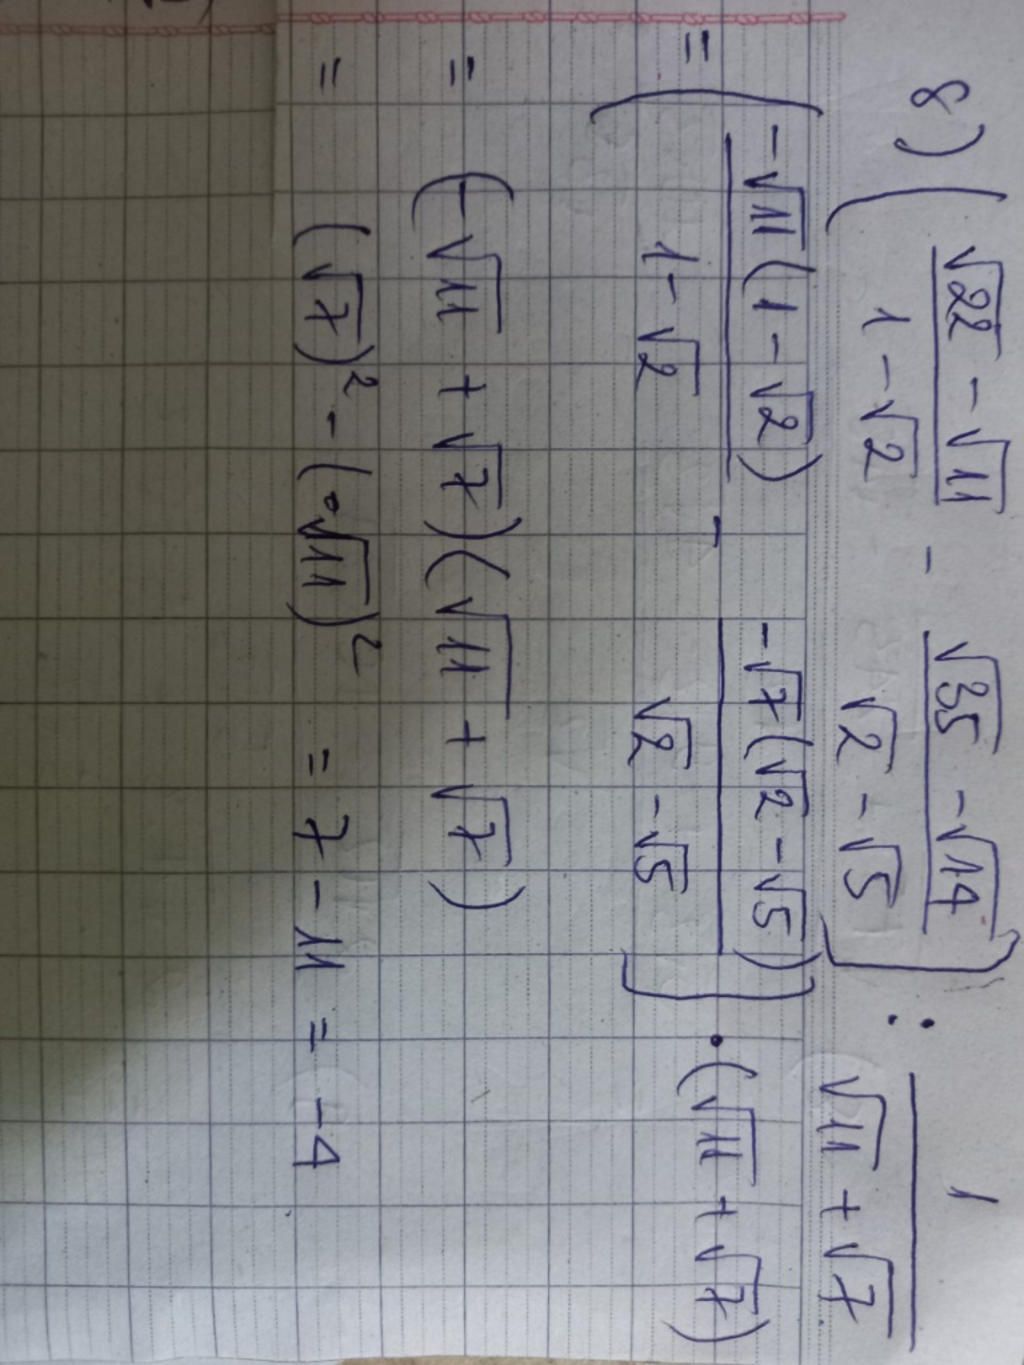 8) ( (√22 - √11)/(1 - √2) - (√35 - √14)/(√2 - √5) ) : 1/(√11 + √7)
= ( -√11(1 - √2)/(1 - √2) - -√7(√2 - √5)/(√2 - √5) ) · (√11 + √7)
= (-√11 + √7)(√11 + √7)
= (√7)² - (√11)² = 7 - 11 = -4